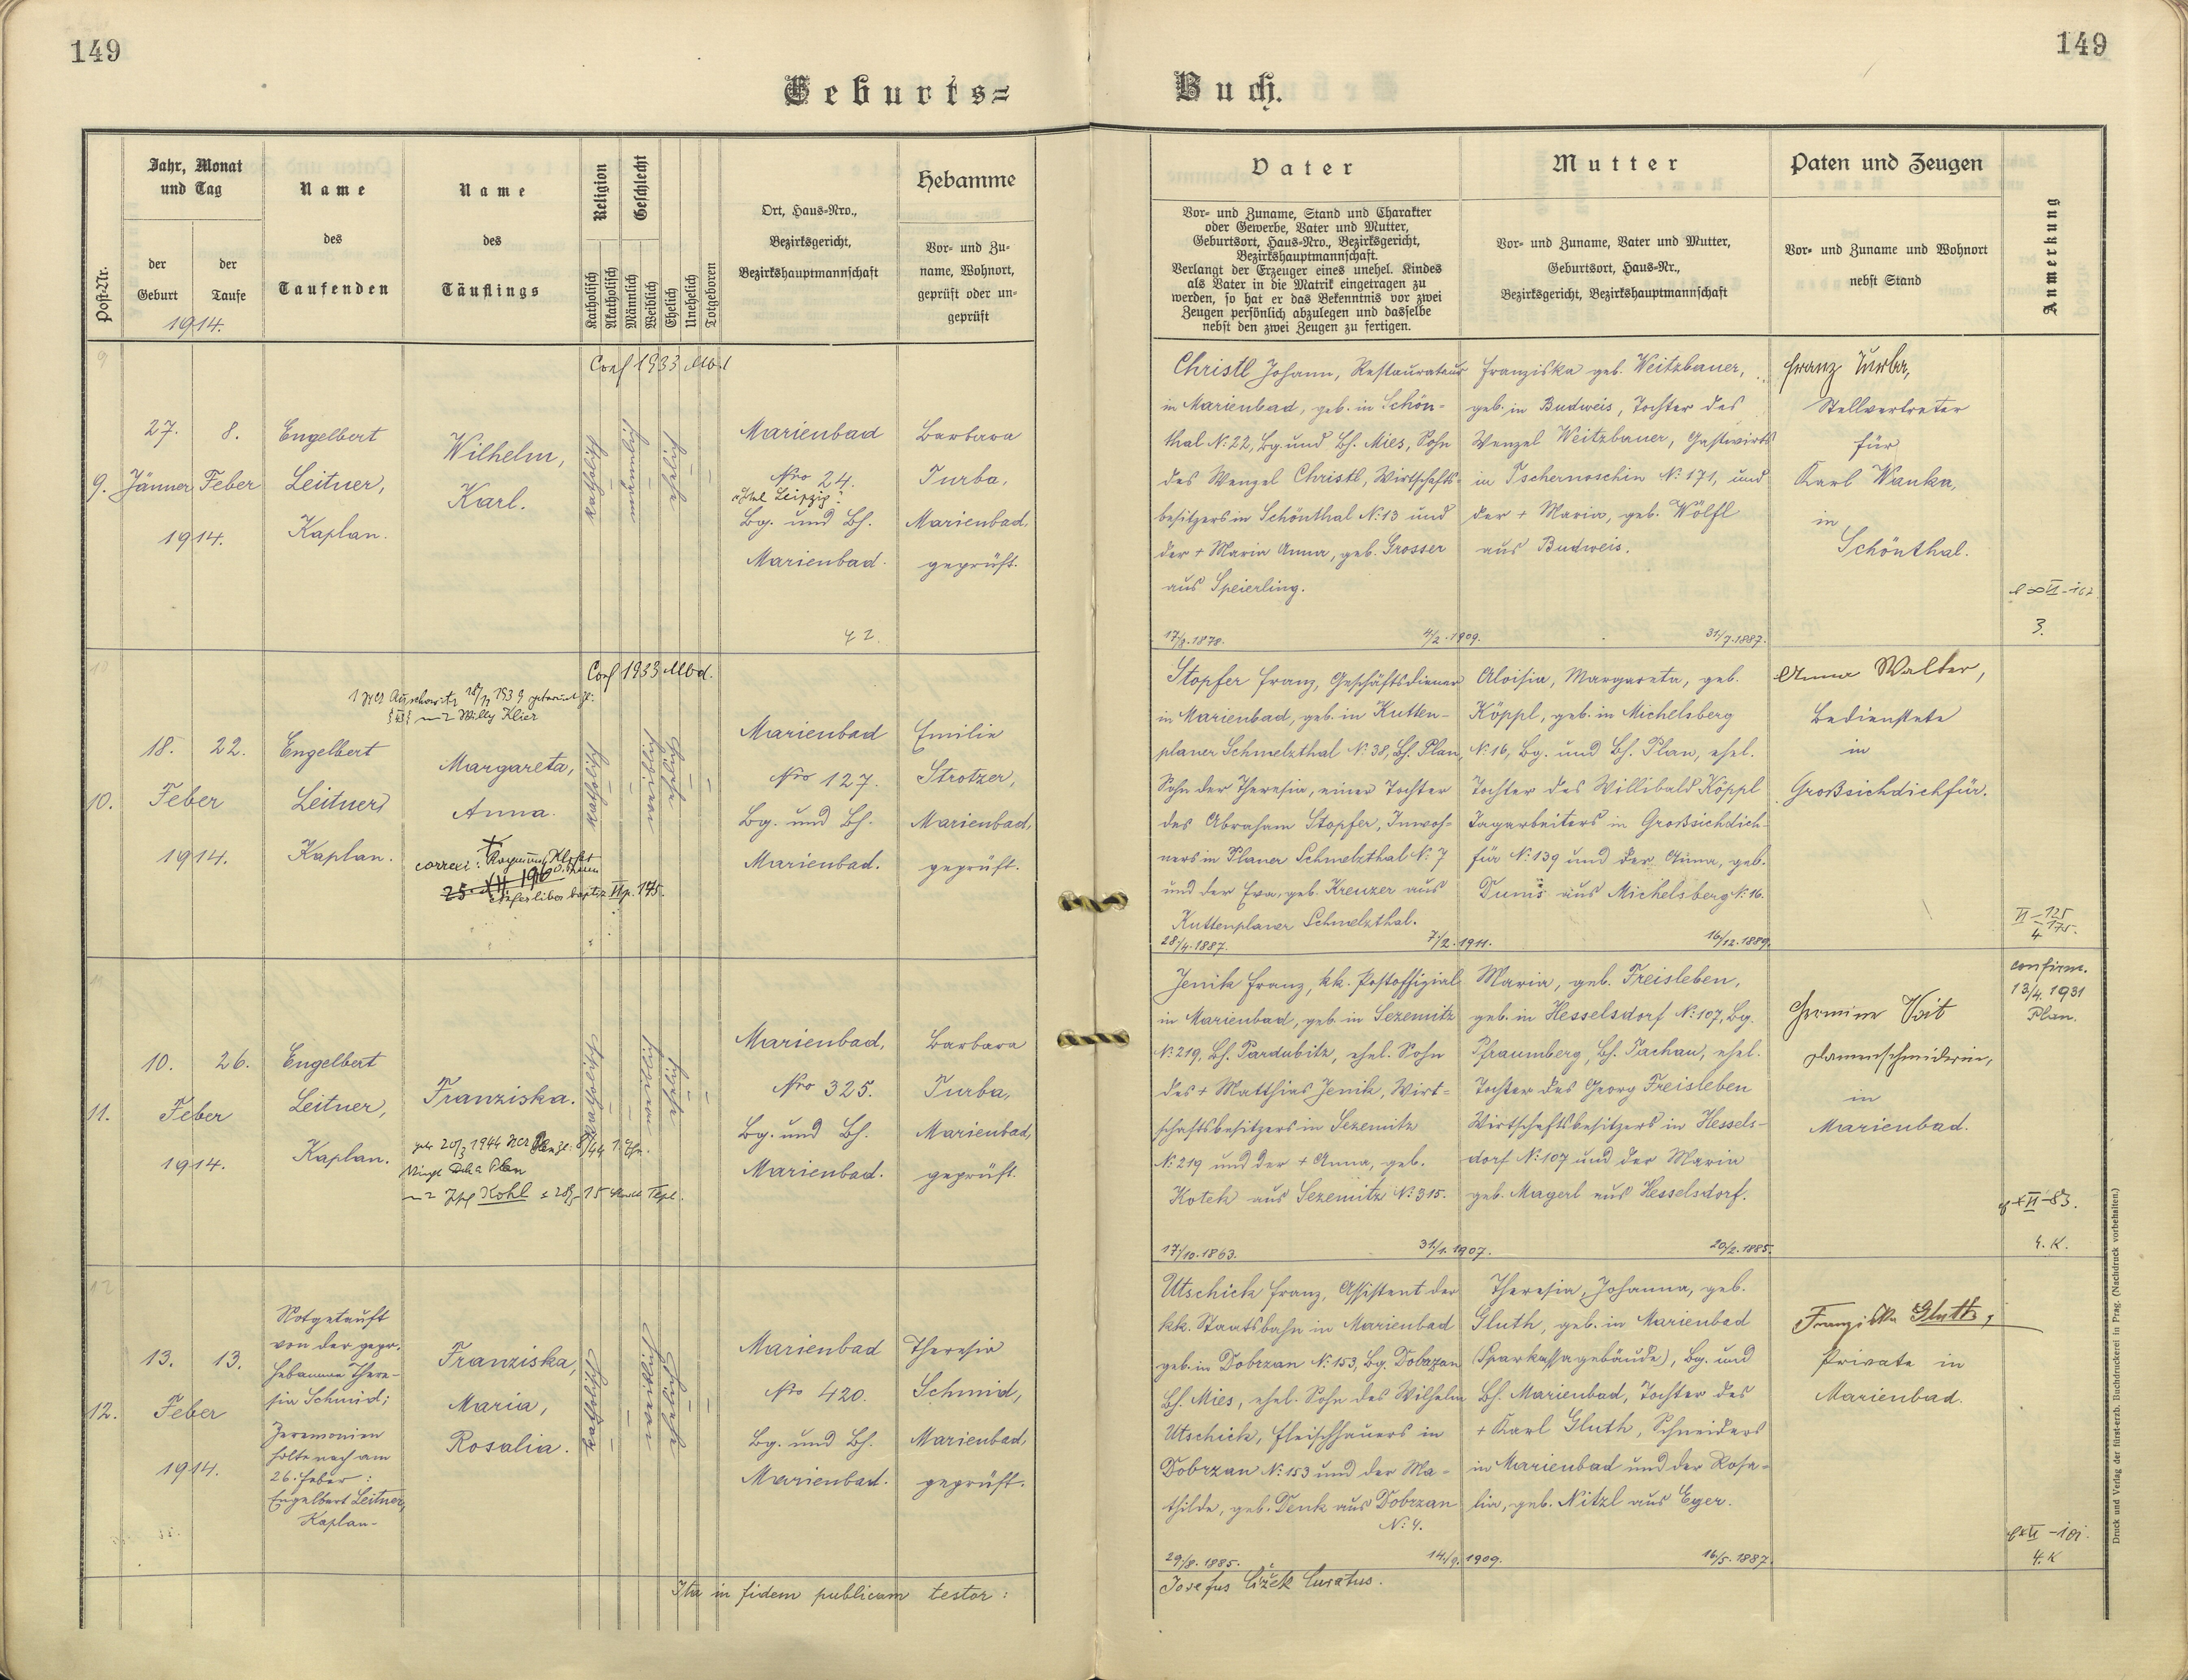 149
149
Geburts=
Buch.
Post-Nr.
Jahr, Monat
und Tag
der
Geburt
der
Taufe
1914.
Name
des
Taufenden
Name
des
Täuflings
Religion
Geschlecht
Katholisch
Akatholisch
Männlich
Weiblich
Ehelich
Unehelich
Totgeboren
Ort, Haus-Nro.,
Bezirksgericht,
Bezirkshauptmannschaft
Hebamme
Vor- und Zu-
name, Wohnort,
geprüft oder un-
geprüft
Vater
Vor- und Zuname, Stand und Charakter
oder Gewerbe, Vater und Mutter,
Geburtsort, Haus-Nro., Bezirksgericht,
Bezirkshauptmannschaft.
Verlangt der Erzeuger eines unehel. Kindes
als Vater in die Matrik eingetragen zu
werden, so hat er das Bekenntnis vor zwei
Zeugen persönlich abzulegen und dasselbe
nebst den zwei Zeugen zu fertigen.
Mutter
Vor- und Zuname, Vater und Mutter,
Geburtsort, Haus-Nr.,
Bezirksgericht, Bezirkshauptmannschaft
Paten und Zeugen
Vor- und Zuname und Wohnort
nebst Stand
Anmerkung
9.
27.
Jänner
8.
Feber
1914.
Engelbert
Leitner,
Kaplan.
Wilhelm,
Karl.
Conf 1933 Mbd
katholisch
männlich
ehelich
Marienbad
Nro 24.
"Htel Leipzig"
Bg. und Bh.
Marienbad.
Barbara
Turba,
Marienbad,
geprüft.
Christl Johann, Restaurateur
in Marienbad, geb. in Schön=
thal N: 22, Bg und Bh. Mies, Sohn
des Wenzel Christl, Wirtschafts=
besitzers in Schönthal N: 13 und
der + Maria Anna, geb. Grosser
aus Speierling.
4/2. 1909.
Franziska geb. Weitzbauer,
geb. in Budweis, Tochter des
Wenzel Weitzbauer, Gastwirts
in Tschernoschin N: 171, und
der + Maria, geb. Wölfl
aus Budweis.
31/7. 1887.
Franz Turba,
Stellvertreter
für
Karl Wanka,
in
Schönthal.
3.
10.
18.
22.
Feber
1914.
Engelbert
Leitner,
Kaplan.
Conf 1933 Mbd.
mit Willy Klier
Margareta,
Anna.
katholisch
weiblich
ehelich
Marienbad
Nro 127.
Bg. und Bh.
Marienbad.
Emilie
Strotzer,
Marienbad,
geprüft.
Stopfer Franz, Geschäftsdiener
in Marienbad, geb. in Kutten-
planer Schmelzthal N: 38, Bh. Plan,
Sohn der Theresia, einer Tochter
des Abraham Stopfer, Inwoh=
ners in Planer Schmelzthal N: 7
und der Eva, geb. Kreuzer aus
Kuttenplaner Schmelzthal.
28/4. 1887.
7/2. 1911.
Aloisia, Margareta, geb.
Köppl, geb. in Michelsberg
N: 16, Bg. und Bh. Plan, ehel.
Tochter des Willibald Köppl
Tagarbeiters in Großsichdich-
für N: 139 und der Anna, geb.
aus Michelsberg N: 16.
16/12. 1889.
Anna Walter,
Bedienstete
in
Großsichdichfür.
11.
10.
26.
Feber
1914.
Engelbert
Leitner,
Kaplan.
Franziska.
katholisch
weiblich
ehelich
Marienbad,
Nro 325.
Bg. und Bh.
Marienbad.
Barbara
Turba,
Marienbad,
geprüft.
Jenik Franz, kk. Postoffizial
in Marienbad, geb. in Sezemitz
N: 219, Bh. Pardubitz, ehel. Sohn
des + Matthias Jenik, Wirt=
schaftsbesitzers in Sezemitz
N: 219 und der + Anna, geb.
Kotek aus Sezemitz N: 315.
17/10. 1863.
31/1. 1907.
Maria, geb. Freisleben,
geb. in Hesselsdorf N: 107, Bg.
Pfraumberg, Bh. Tachau, ehel.
Tochter des Georg Freisleben
Wirtschaftsbesitzers in Hessels-
dorf N: 107 und der Maria
geb. Magerl aus Hesselsdorf.
20/2. 1885.
Hermine Voit
in
Marienbad.
confirm.
13/4. 1931
Plan.
4. K.
12.
13.
13.
Feber
1914.
Notgetauft
von der gepr.
Hebamme There-
sia Schmid;
Zeremonien
holte nach am
26. Feber:
Engelbert Leitner,
Kaplan-
Franziska,
Maria,
Rosalia.
katholisch
weiblich
ehelich
Marienbad
Nro 420.
Bg. und Bh.
Marienbad.
Theresia
Schmid,
Marienbad,
geprüft.
Utschick Franz, Assistent der
kk. Staatsbahn in Marienbad
geb. in Dobrzan N: 153, Bg. Dobrzan
Bh. Mies, ehel. Sohn des Wilhelm
Utschick, Fleischhauers in
Dobrzan N: 153 und der Ma-
thilde, geb. Denk aus Dobrzan
N: 4.
29/8. 1885.
14/9. 1909.
Theresia, Johanna, geb.
Gluth, geb. in Marienbad
(Sparkassagebäude), Bg. und
Bh. Marienbad, Tochter des
+ Karl Gluth, Schneiders
in Marienbad und der Rosa-
lia, geb. Nitzl aus Eger.
16/5. 1887.
Franziska Gluth,
Private in
Marienbad.
4. K
Ita in fidem publicam testor:
Josefus Čížek Curatus.
Druck und Verlag der fürst-erzb. Buchdruckerei in Prag. (Nachdruck vorbehalten.)